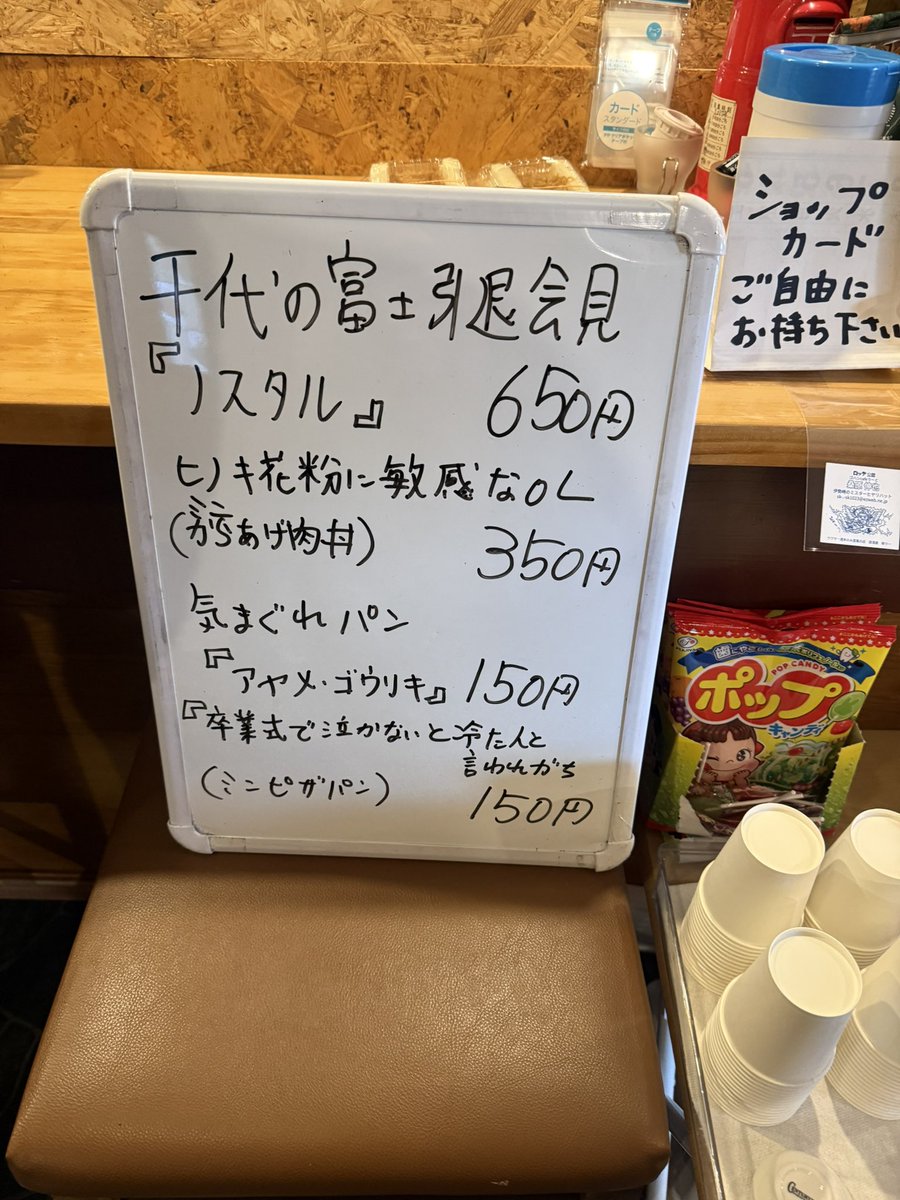 千代の富士引退会見
『ノスタル』 650円
ヒノキ花粉に敏感なOL
(ミニからあげ肉丼) 350円
気まぐれパン
『アヤメ・ゴウリキ』 150円
『卒業式で泣かないと冷たい人と
言われがち
(ミンピザパン) 150円
ショップ
カード
ご自由に
お持ち下さい
カード
スタンダード
POP CANDY
ポップ
キャンディ